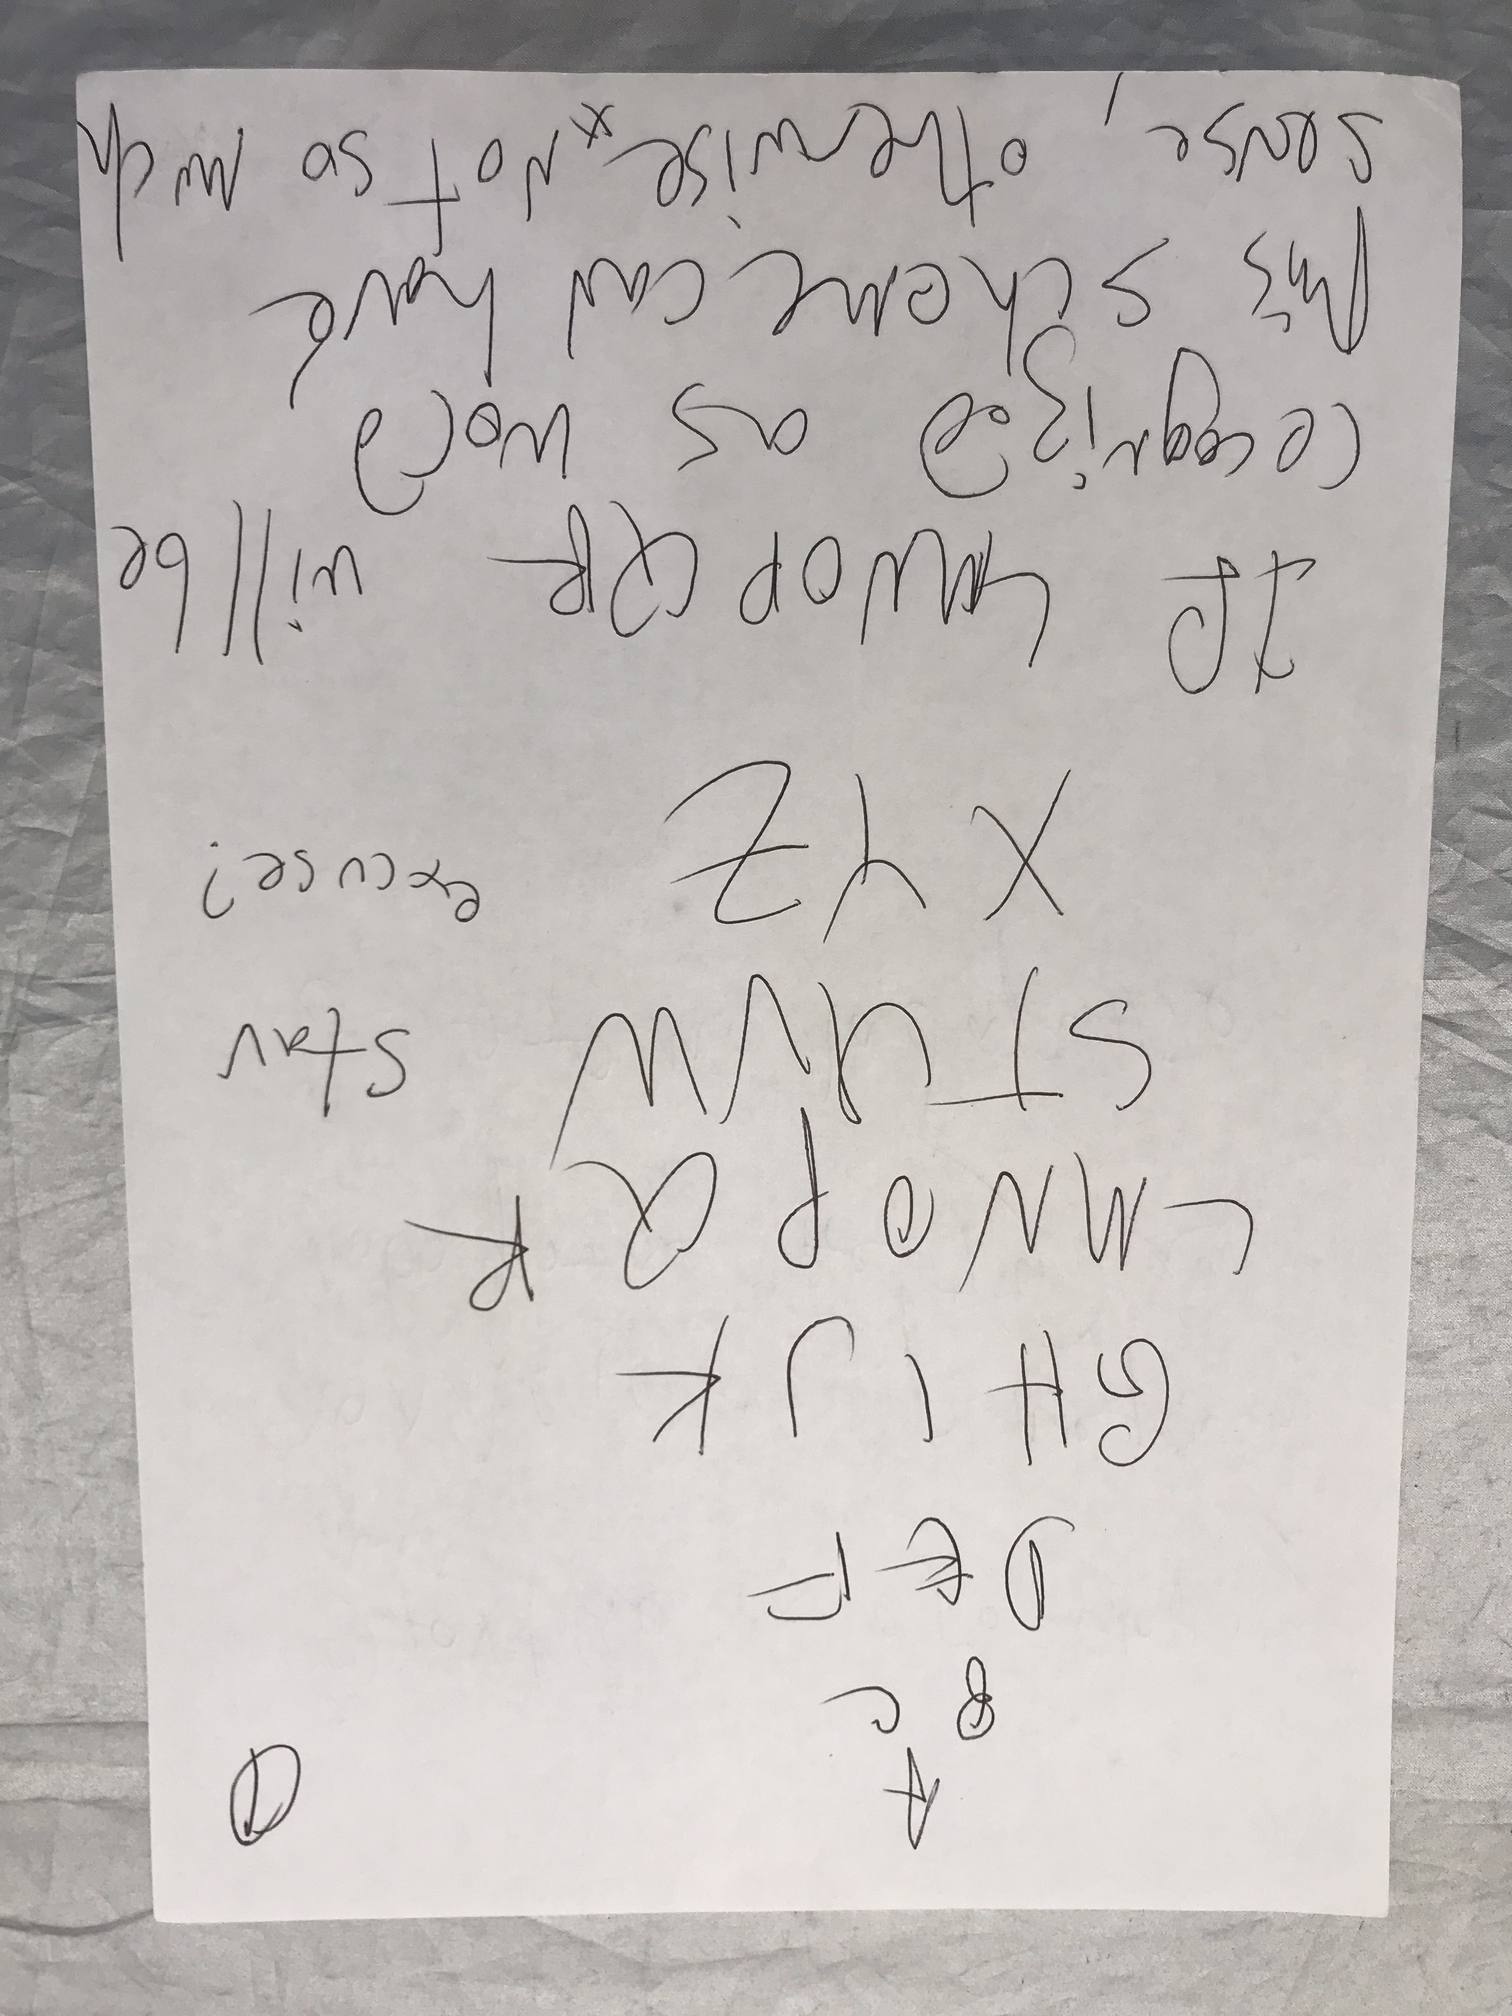 ①
A
B C
D E F
G H I J K
L M N O P Q R
S T U V W Star
X Y Z excuse?
If LMNOPQR will be
recognized as word
this scheme can have
sense, otherwise * not so much